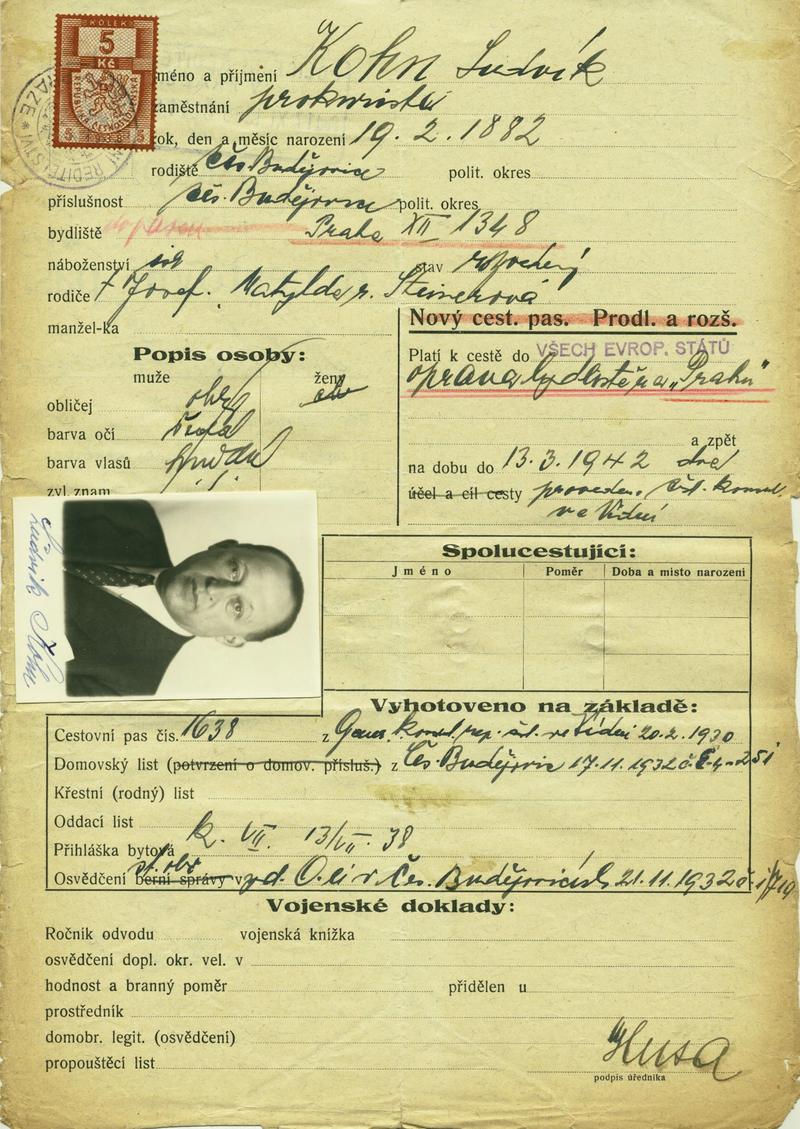 KOLEK
5
Kč
Jméno a příjmení Kohn Ludvík
zaměstnání prokurista
rok, den a měsíc narození 19. 2. 1882
rodiště Čes. Budějovice polit. okres
příslušnost Čes. Budějovice polit. okres
bydliště Praha XII 1348
náboženství stav rozvedený
rodiče † Josef. Matylda r. Steinerová
manžel-ka
Nový cest. pas. Prodl. a rozš.
Popis osoby:
muže ženy
obličej
barva očí šedá
barva vlasů
zvl. znam.
Platí k cestě do VŠECH EVROP. STÁTŮ
oprava bydliště na „Prahu"
a zpět
na dobu do 13. 3. 1942
účel a cíl cesty proveden. čsl. konsul.
ve Vídni
Ludvík Kohn
Spolucestující:
Jméno Poměr Doba a místo narození
Vyhotoveno na základě:
Cestovní pas čís. 1638 z Gener. konsul. rep. čsl. ve Vídni 20. 2. 1930
Domovský list (potvrzení o domov. přísluš.) z Čes. Budějovic 17. 11. 1932
Křestní (rodný) list
Oddací list
Přihláška bytová k. VII. 13/VII. 38
Osvědčení berní správy v Čes. Budějovicích 21. 11. 1932
Vojenské doklady:
Ročník odvodu vojenská knížka
osvědčení dopl. okr. vel. v
hodnost a branný poměr přidělen u
prostředník
domobr. legit. (osvědčení)
propouštěcí list
Husa
podpis úředníka